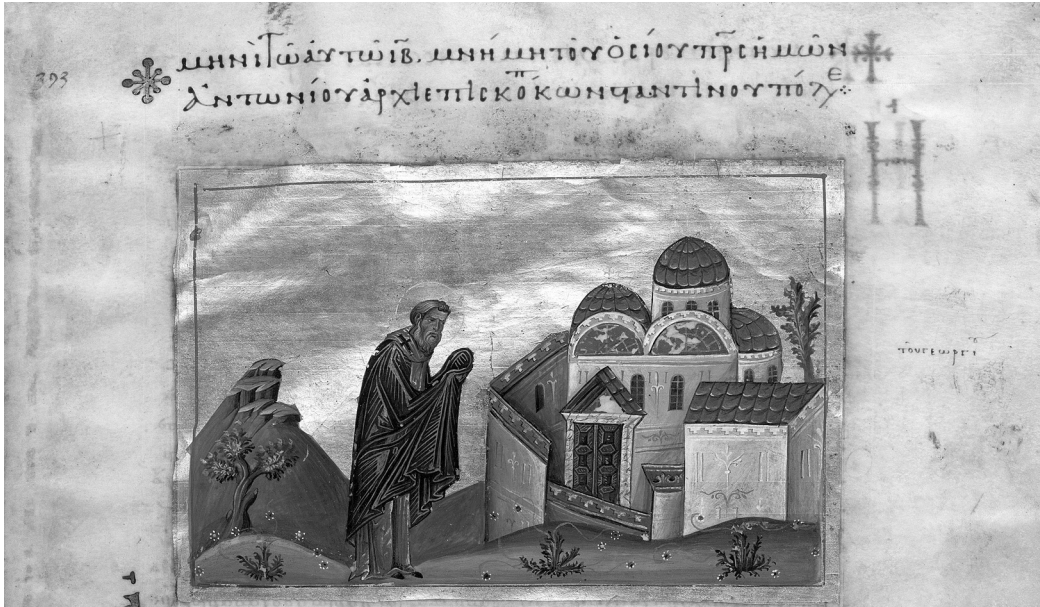 μηνὶ τῶ αυτῶ ιβ. μνήμη τοῦ ὁσίου πρς ἡμῶν
Ἀντωνίου ἀρχιεπισκόπ κωνσταντινουπόλε
393
Η